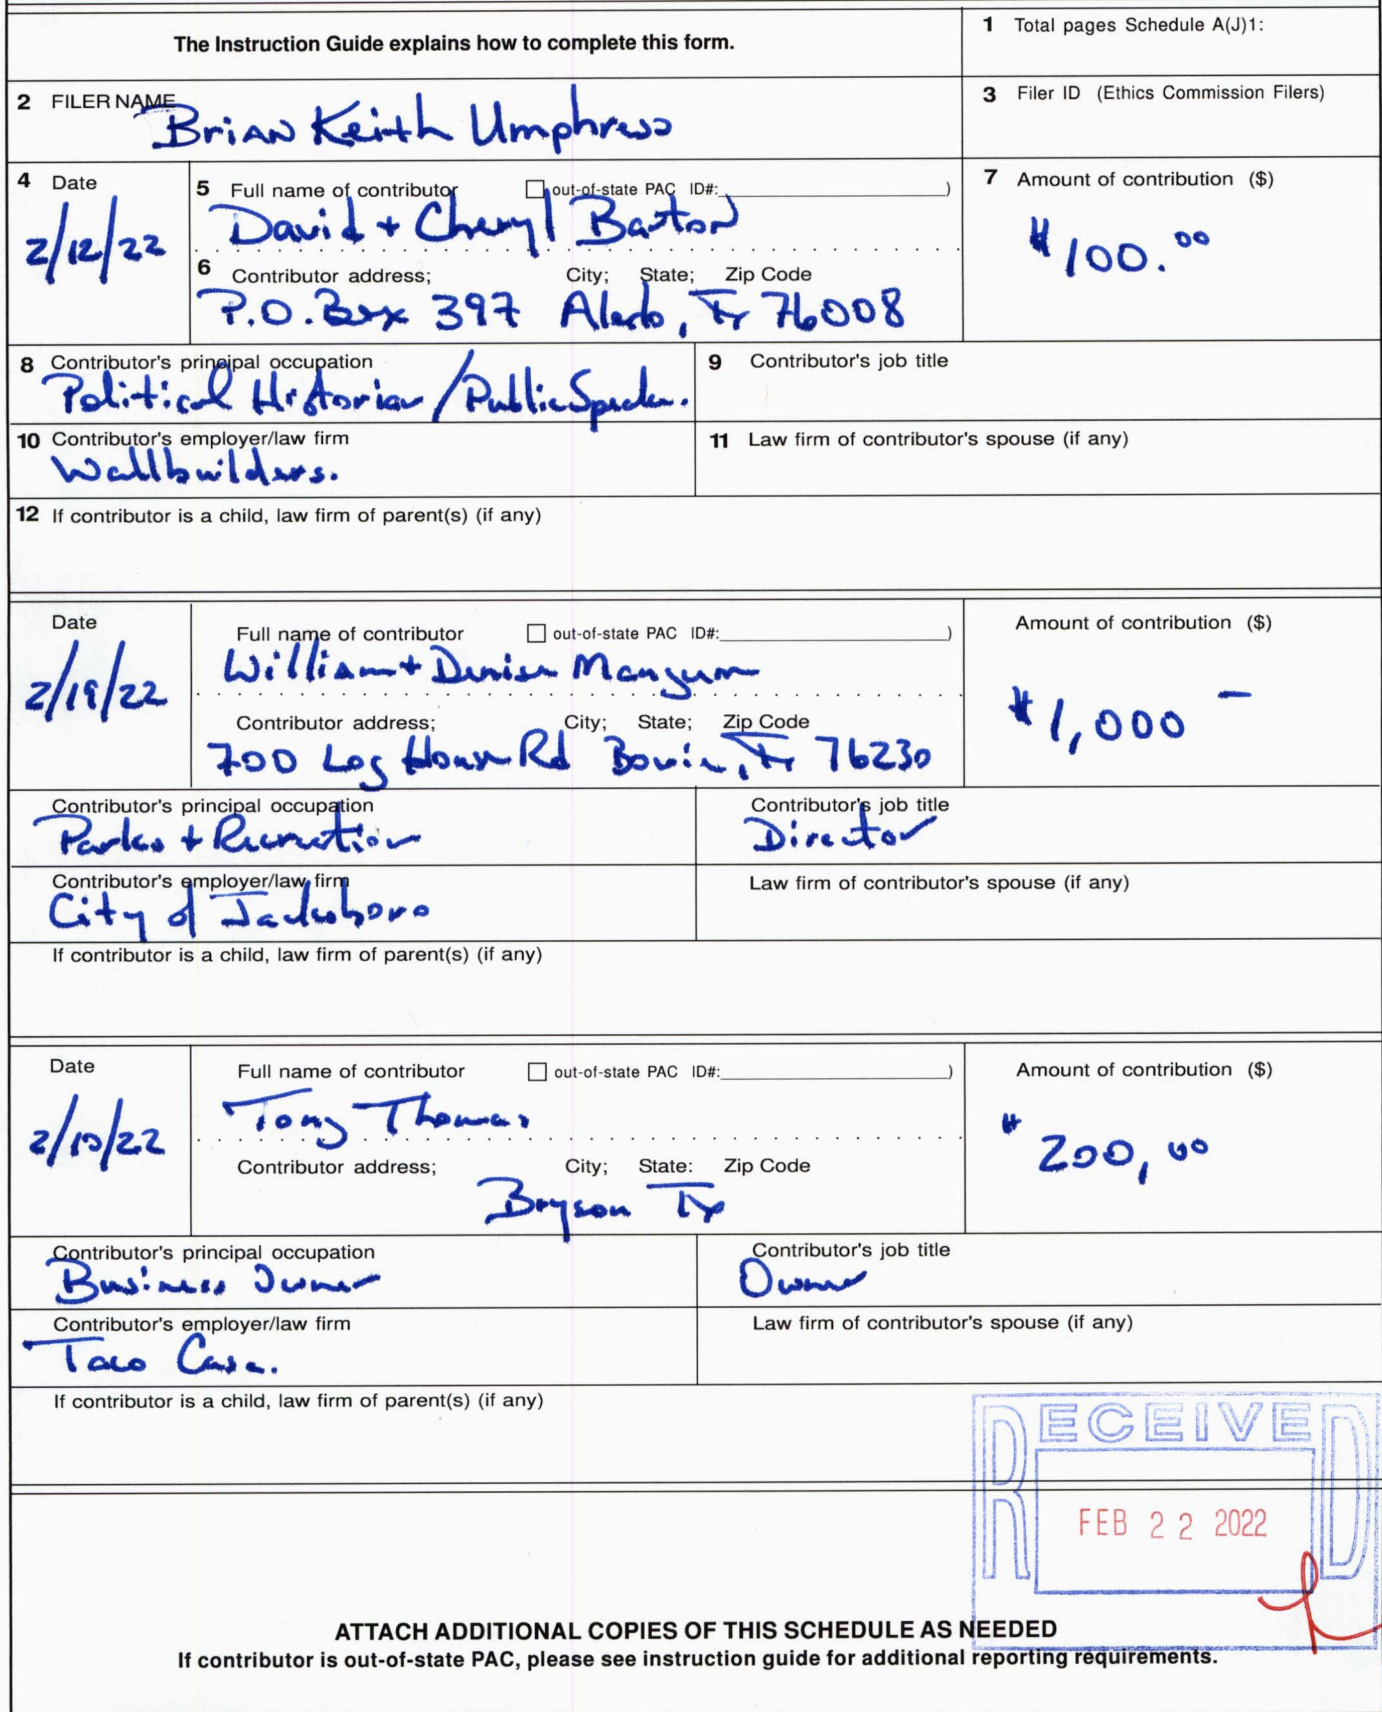 The Instruction Guide explains how to complete this form.
1 Total pages Schedule A(J)1:
2 FILER NAME
Brian Keith Umphress
3 Filer ID (Ethics Commission Filers)
4 Date
2/12/22
5 Full name of contributor out-of-state PAC ID#: )
David + Cheryl Barton
6 Contributor address; City; State; Zip Code
P.O. Box 397 Aledo, Tx 76008
7 Amount of contribution ($)
$100.00
8 Contributor's principal occupation
Political Historian / Public Speaker.
9 Contributor's job title
10 Contributor's employer/law firm
Wallbuilders.
11 Law firm of contributor's spouse (if any)
12 If contributor is a child, law firm of parent(s) (if any)
Date
2/19/22
Full name of contributor out-of-state PAC ID#: )
William + Denise Mangum
Contributor address; City; State; Zip Code
700 Log House Rd Bowie, Tx 76230
Amount of contribution ($)
$1,000 –
Contributor's principal occupation
Parks + Recreation
Contributor's job title
Director
Contributor's employer/law firm
City of Jacksboro
Law firm of contributor's spouse (if any)
If contributor is a child, law firm of parent(s) (if any)
Date
2/10/22
Full name of contributor out-of-state PAC ID#: )
Tony Thomas
Contributor address; City; State: Zip Code
Bryson Tx
Amount of contribution ($)
$200,00
Contributor's principal occupation
Business Owner
Contributor's job title
Owner
Contributor's employer/law firm
Taco Casa.
Law firm of contributor's spouse (if any)
If contributor is a child, law firm of parent(s) (if any)
RECEIVED
FEB 22 2022
ATTACH ADDITIONAL COPIES OF THIS SCHEDULE AS NEEDED
If contributor is out-of-state PAC, please see instruction guide for additional reporting requirements.